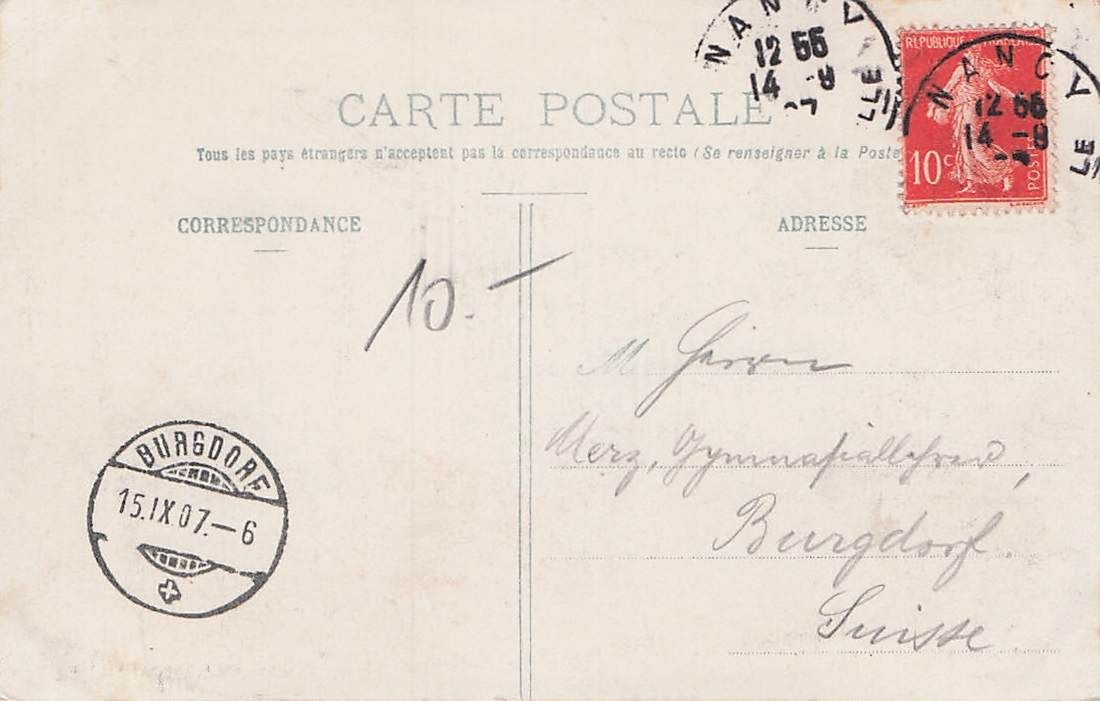 NANCY
12 55
14 -9
LLE
REPUBLIQUE FRANÇAISE
10c
POSTES
NANCY
12 55
14 -9
LE
CARTE POSTALE
Tous les pays étrangers n'acceptent pas la correspondance au recto (Se renseigner à la Poste
CORRESPONDANCE
ADRESSE
10.-
M Herrn
Merz, Gymnasiallehrer,
Burgdorf.
Suisse
BURGDORF
15.IX.07.-6